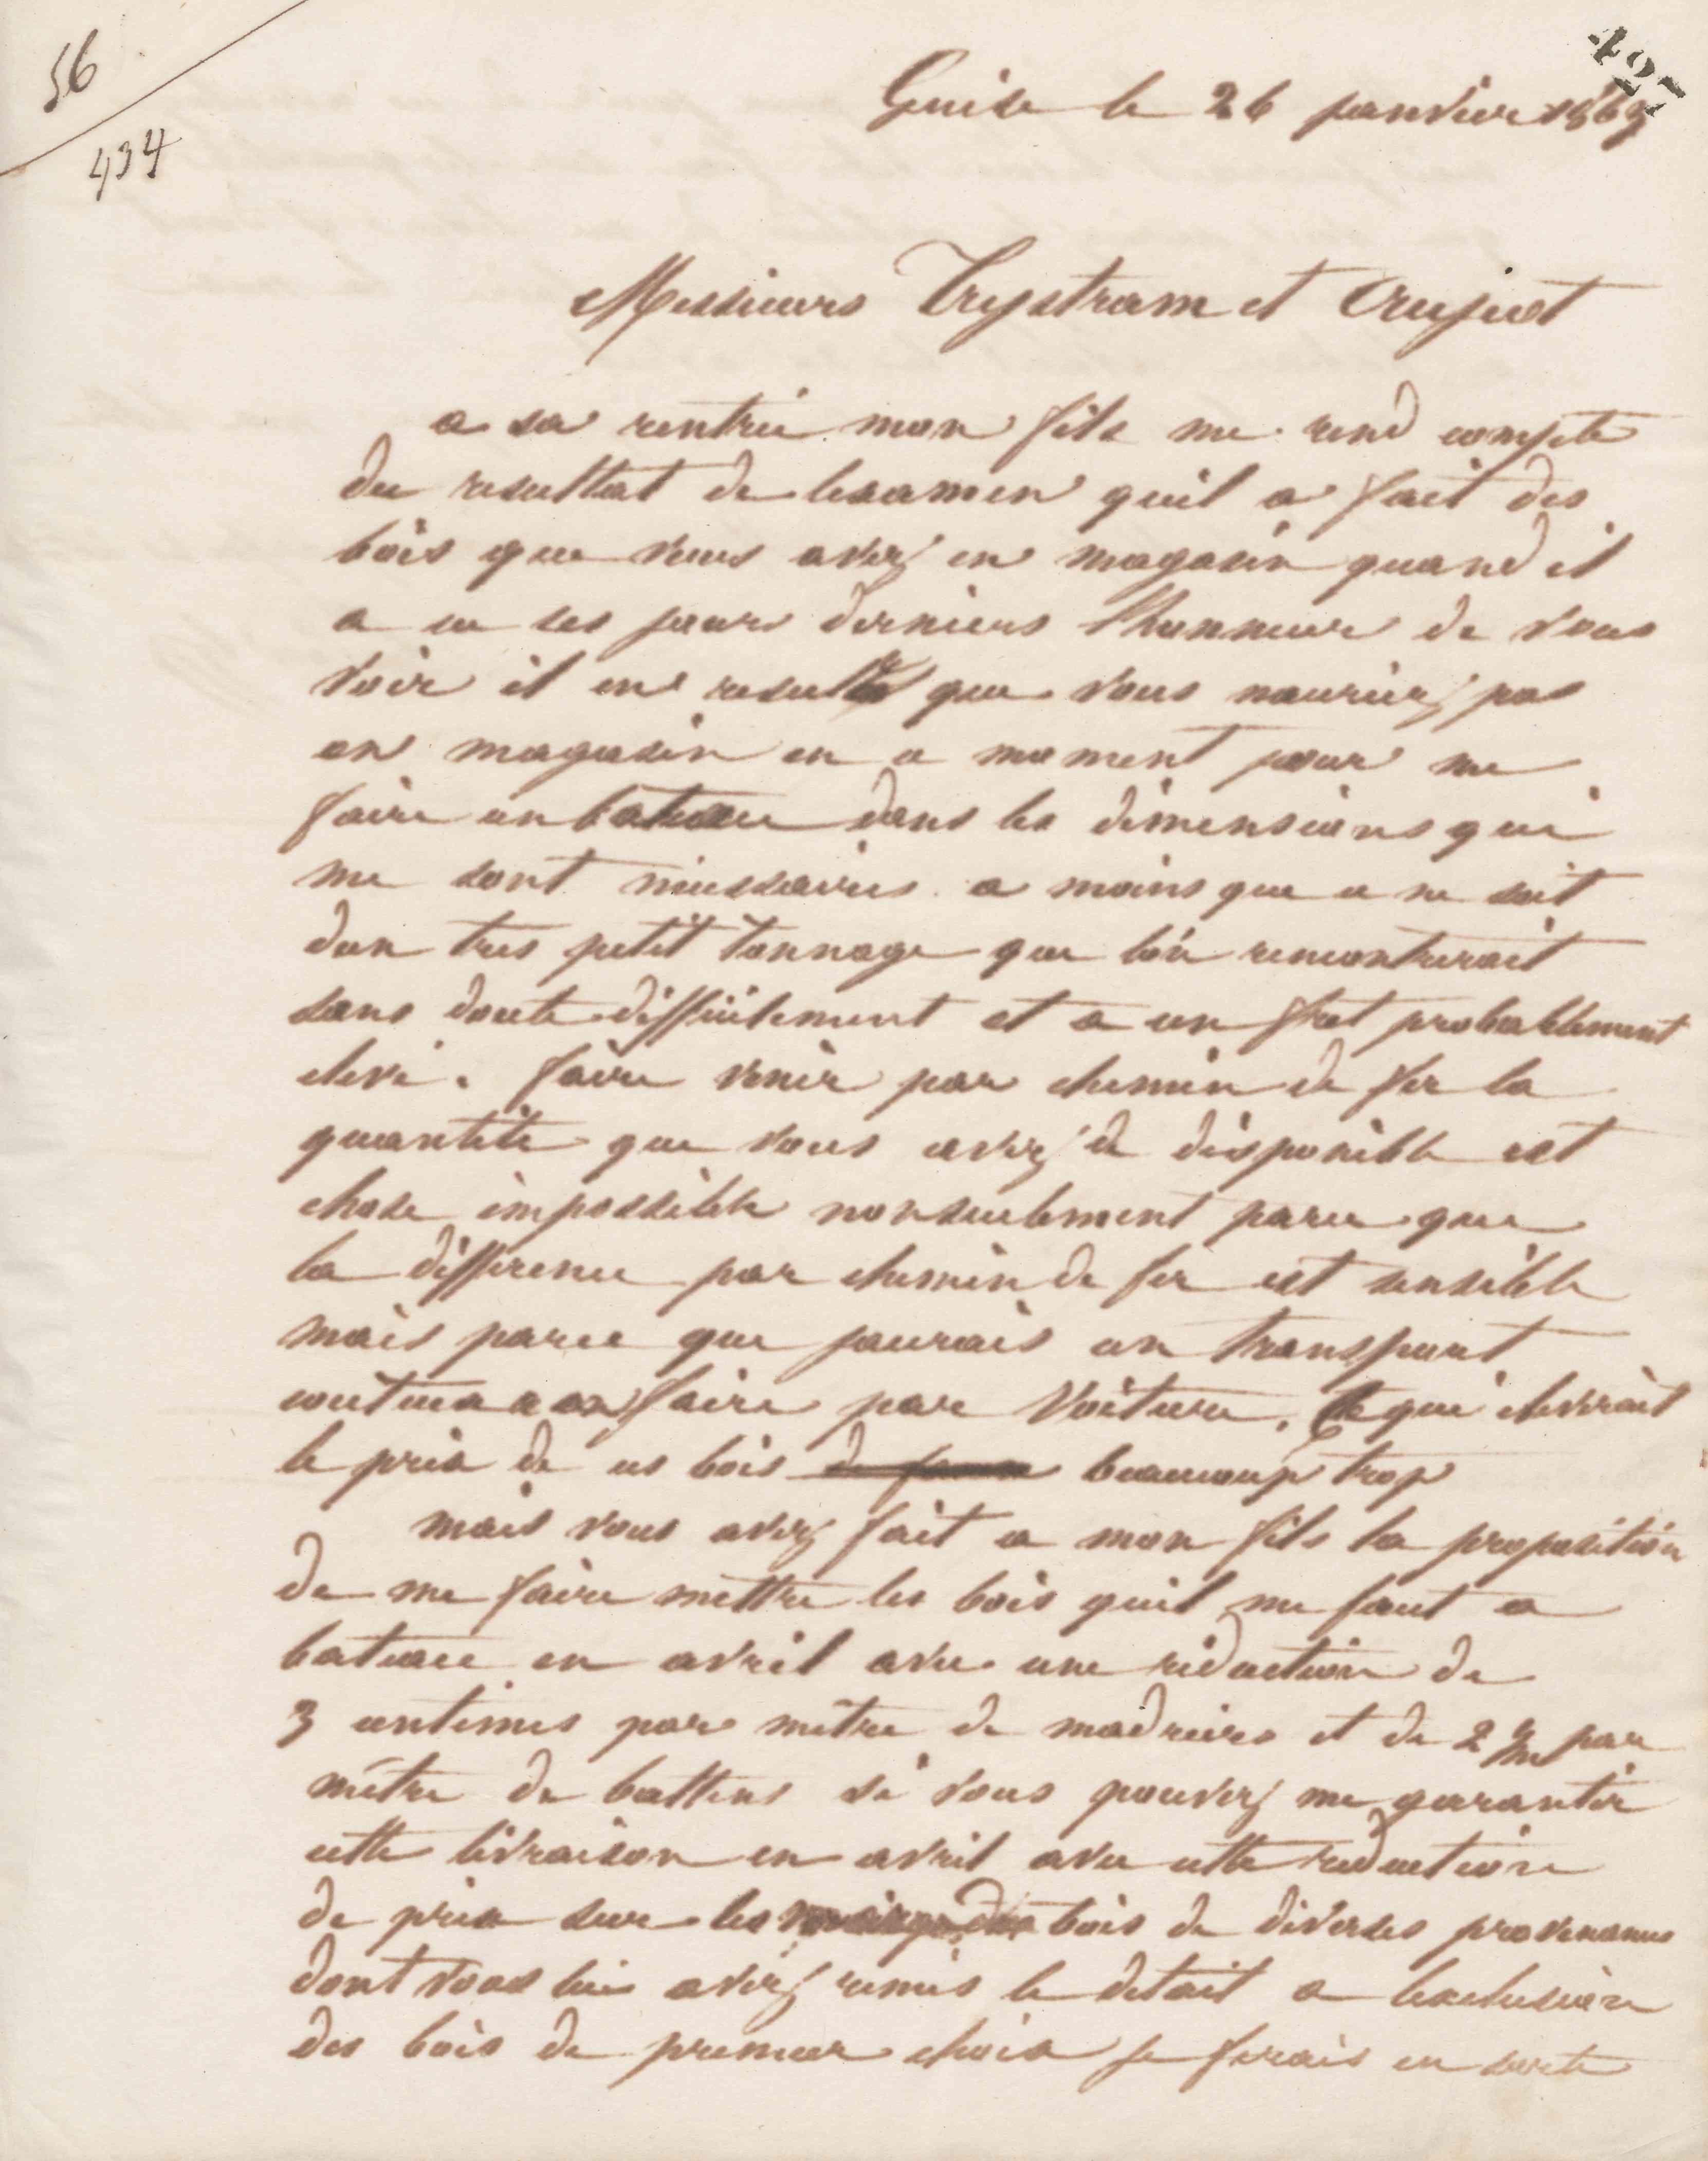 56
434
427
Guise le 26 janvier 1863
Messieurs Trystram et Crujeot
a sa rentrée mon fils me rend compte
du resultat de lexamen quil a fait des
bois que vous avez en magasin quand il
a eu ces jours derniers lhonneur de vous
voir il en resulte que vous nauriez pas
en magasin en ce moment pour me
faire un bateau dans les dimensions qui
me sont nécessaires a moins que ce ne soit
dun tres petit tonnage que lon rencontrerait
sans doute difficilement et a un fret probablement
elevé. faire venir par chemin de fer la
quantité que vous avez de disponible est
chose impossible nonseulement parce que
la difference par chemin de fer est sensible
mais parce que jaurais un transport
couteux a faire par voiture. Ce qui eleverait
le prix de ces bois beaucoup trop
mais vous avez fait a mon fils la proposition
de me faire mettre les bois quil me faut a
bateau en avril avec une réduction de
3 centimes par mètre de madriers et de 2 c/m par
mètre de battens si vous pouvez me garantir
cette livraison en avril avec cette reduction
de prix sur les bois de diverses provenances
dont vous lui avez remis le detail a lexclusion
des bois de premier choix je ferais en sorte